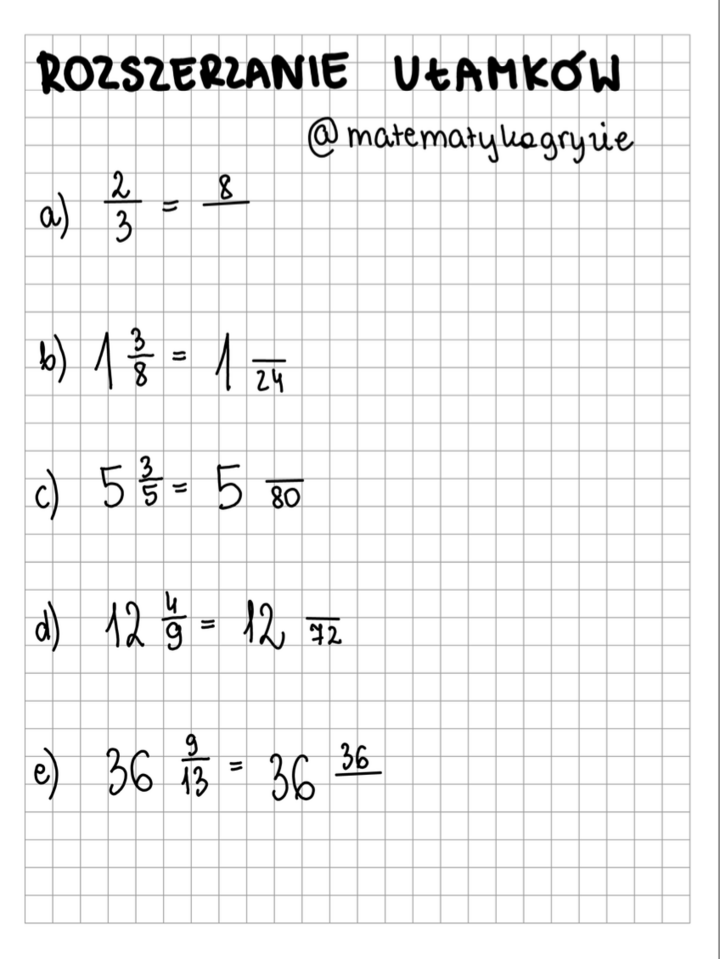 ROZSZERZANIE UŁAMKÓW
@matematykagryzie
a) 2/3 = 8/
b) 1 3/8 = 1 /24
c) 5 3/5 = 5 /80
d) 12 4/9 = 12 /72
e) 36 9/13 = 36 36/